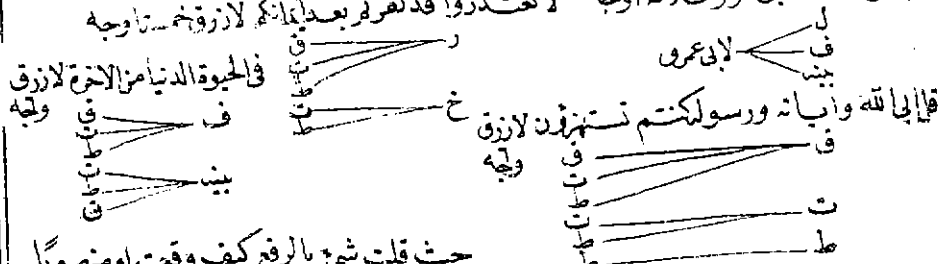 لا تعتذروا قد كفرتم بعد ايمانكم لازرق خمسة اوجه
ل
ف
بينه
لابى عمرو
ر
ق
ت
ط
خ
ت
ط
فى الحيوة الدنيا من الاخرة لازرق
وجه
ف
ق
ت
ط
بينه
ت
ط
ق
قل ابالله واياته ورسوله كنتم تستهزؤن لازرق
وجه
ق
ق
ت
ط
ت
ت
ط
ط
ط
حيث قلت شئ بالرفع كيف وقعت او منصوبا